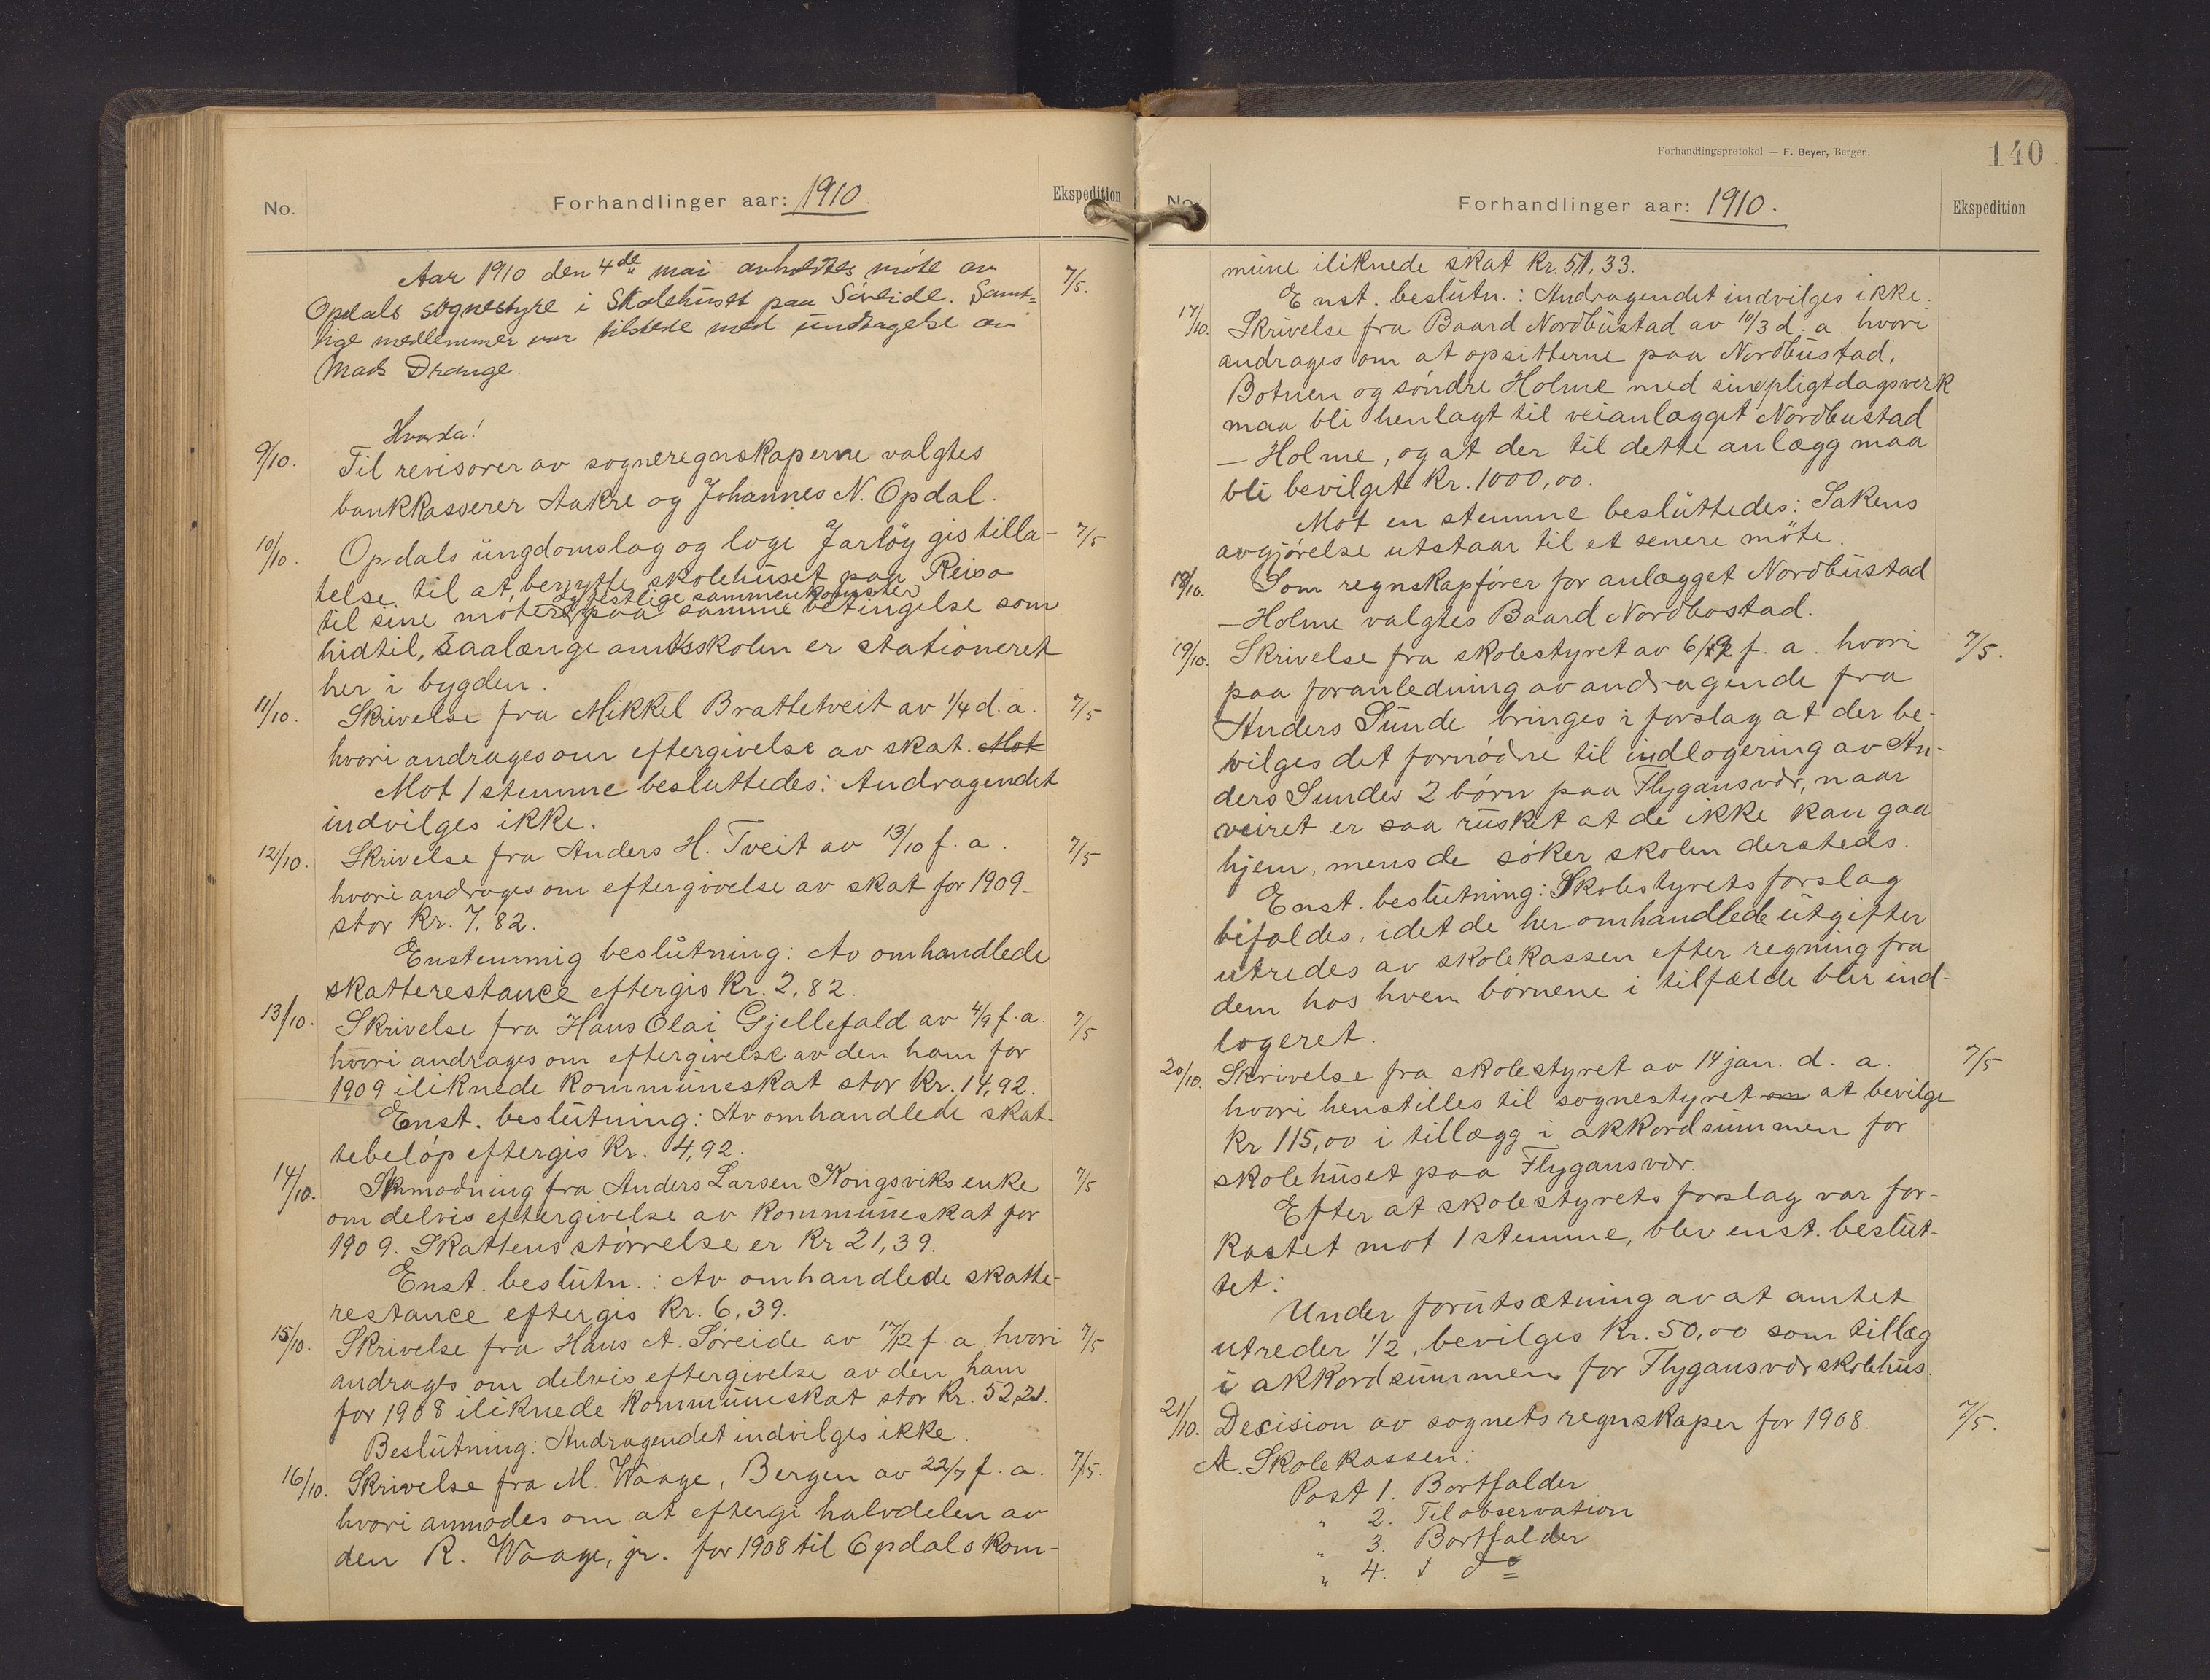 No.
Forhandlinger aar: 1910.
Ekspedition
Aar 1910 den 4de mai avholdtes möte av
7/5.
Opdals sognestyre i Skolehuset paa Söreide. Samt=
lige medlemmer var tilstede med undtagelse av
Mads Drange.
Hvorda!
9/10. Til revisorer av sogneregnskaperne valgtes
bankkasserer Aakre og Johannes N. Opdal.
10/10. Opdals ungdomslag og loge Jarlöy gis tilla-
7/5
telse til at benytte skolehuset paa Reisa
og festlige sammenkomster
til sine möter paa samme betingelse som
hidtil, saalænge amtsskolen er stationeret
her i bygden.
11/10. Skrivelse fra Mikkel Brattetveit av 1/4 d. a.
7/5
hvori andrages om eftergivelse av skat. Mot
Mot 1 stemme besluttedes: Andragendet
indvilges ikke.
12/10. Skrivelse fra Anders H. Tveit av 13/10 f. a.
7/5
hvori andrages om eftergivelse av skat for 1909-
stor kr. 7,82.
Enstemmig beslutning: Av omhandlede
skatterestance eftergis kr. 2,82.
13/10. Skrivelse fra Hans Olai Gjellefald av 4/9 f. a.
7/5
hvori andrages om eftergivelse av den ham for
1909 iliknede kommuneskat stor kr. 14,92.
Enst. beslutning: Av omhandlede skat-
tebelöp eftergis kr. 4,92.
14/10. Anmodning fra Anders Larsen Kongsviks enke
7/5
om delvis eftergivelse av kommuneskat for
1909. Skattens störrelse er kr 21,39.
Enst. beslutn.: Av omhandlede skatte-
restance eftergis kr. 6,39.
15/10. Skrivelse fra Hans A. Söreide av 17/12 f. a. hvori
7/5
andrages om delvis eftergivelse av den ham
for 1908 iliknede kommuneskat stor kr. 52,21.
Beslutning: Andragendet indvilges ikke.
16/10. Skrivelse fra M. Waage, Bergen av 22/7 f. a.
7/5.
hvori anmodes om at eftergi halvdelen av
den R. Waage, jr. for 1908 til Opdals kom-
Forhandlingsprotokol — F. Beyer, Bergen.
140
No.
Forhandlinger aar: 1910.
Ekspedition
mune iliknede skat kr. 51,33.
Enst. beslutn.: Andragendet indvilges ikke.
17/10. Skrivelse fra Baard Nordbustad av 10/3 d. a. hvori
andrages om at opsitterne paa Nordbustad,
Botnen og söndre Holme med sine pligtdagsverk
maa bli henlagt til veianlægget Nordbustad
- Holme, og at der til dette anlægg maa
bli bevilget kr. 1000,00.
Mot en stemme besluttedes: Sakens
avgjörelse utstaar til et senere möte.
18/10. Som regnskapförer for anlægget Nordbustad
- Holme valgtes Baard Nordbostad.
19/10. Skrivelse fra skolestyret av 6/12 f. a. hvori
7/5.
paa foranledning av andragende fra
Anders Sunde bringes i forslag at der be-
vilges det fornödne til indlogering av An-
ders Sundes 2 börn paa Flygansvær, naar
veiret er saa rusket at de ikke kan gaa
hjem, mens de söker skolen dersteds.
Enst. beslutning: Skolestyrets forslag
bifaldes, idet de her omhandlede utgifter
utredes av skolekassen efter regning fra
dem hos hvem börnene i tilfælde blir ind-
logeret.
20/10. Skrivelse fra skolestyret av 14 jan. d. a.
7/5
hvori henstilles til sognestyret om at bevilge
kr 115,00 i tillægg i akkordsummen for
skolehuset paa Flygansvær.
Efter at skolestyrets forslag var for-
kastet mot 1 stemme, blev enst. beslut-
tet:
Under forutsætning av at amtet
utreder 1/2, bevilges kr. 50,00 som tillæg
i akkordsummen for Flygansvær skolehus.
21/10. Decision av sognets regnskaper for 1908.
7/5.
A. Skolekassen:
Post 1. Bortfalder
" 2. Til observation
" 3. Bortfalder
" 4. do